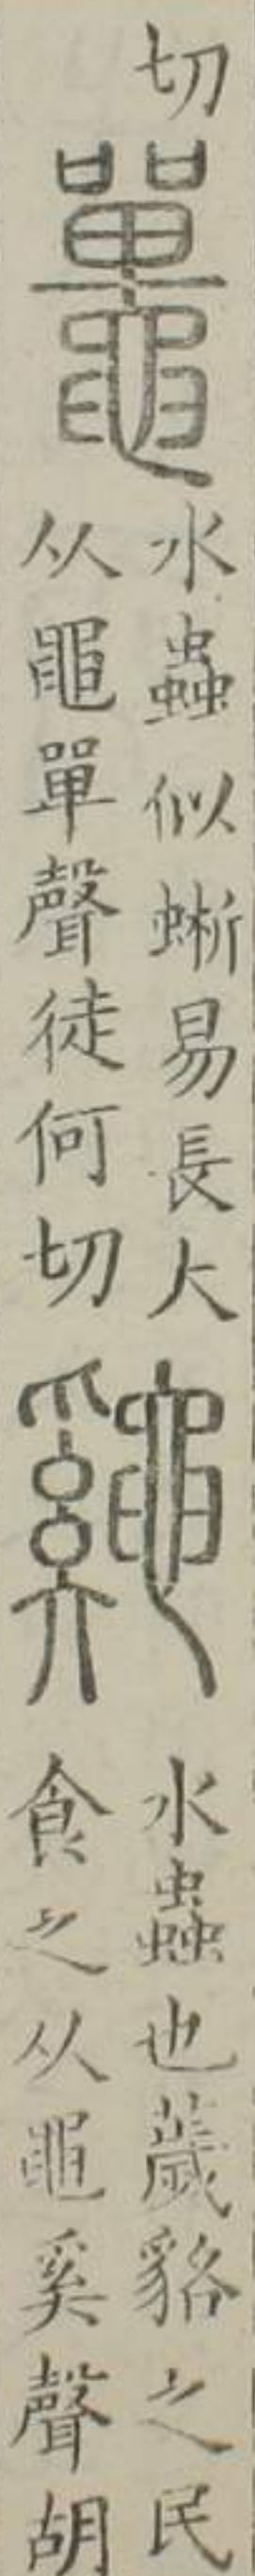 切
鼉
水蟲似蜥易長大
从黽單聲徒何切
鼷
水蟲也薉貉之民
食之从黽奚聲胡